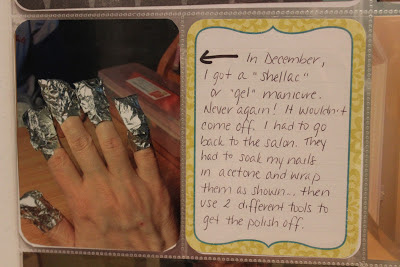 In December,
I got a "shellac"
or "gel" manicure.
Never again! It wouldn't
come off. I had to go
back to the salon. They
had to soak my nails
in acetone and wrap
them as shown... then
use 2 different tools to
get the polish off.